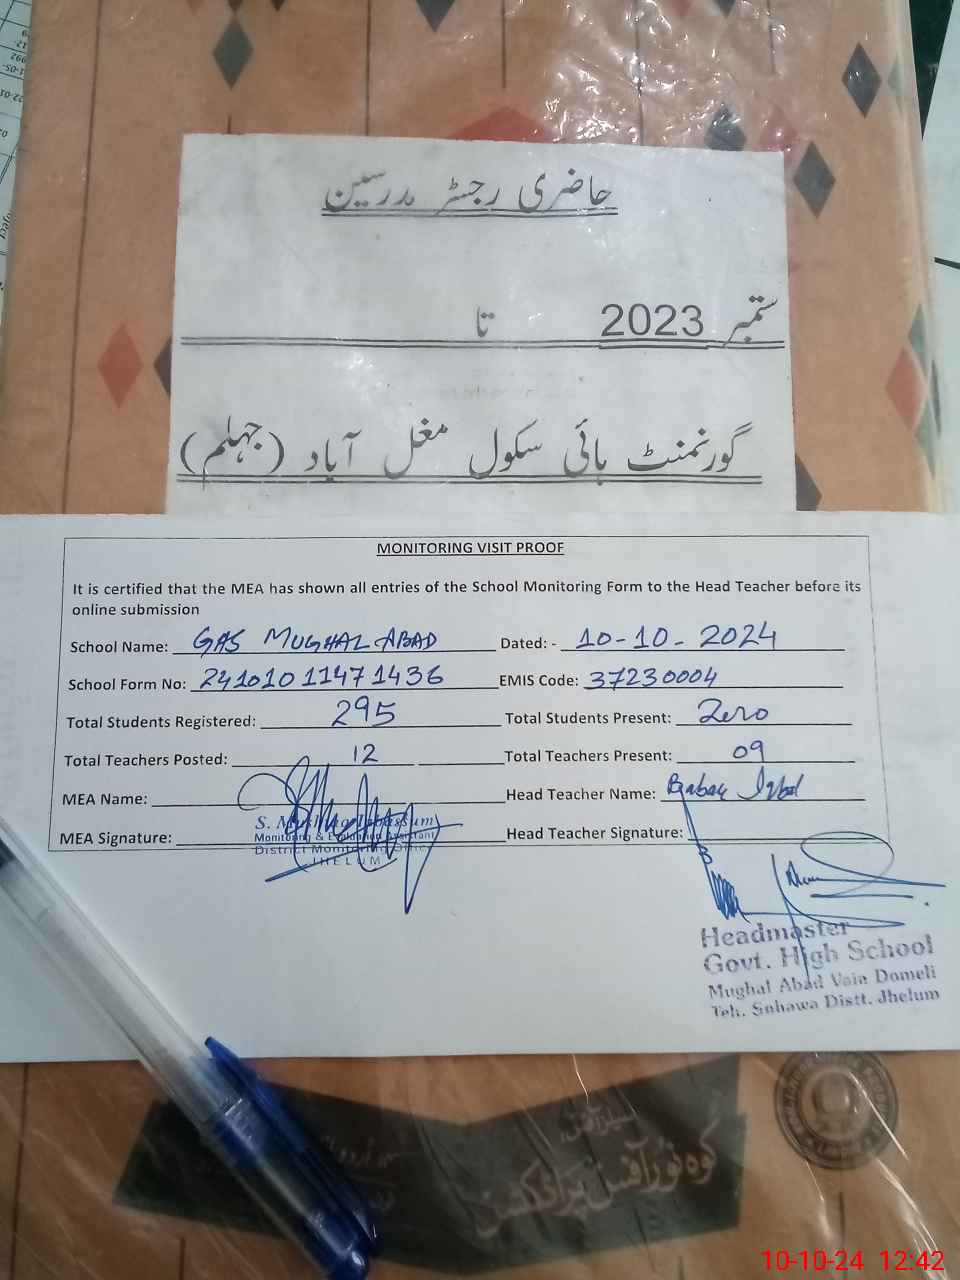 حاضری رجسٹر مدرسین
ستمبر 2023 تا
گورنمنٹ ہائی سکول مغل آباد (جہلم)
MONITORING VISIT PROOF
It is certified that the MEA has shown all entries of the School Monitoring Form to the Head Teacher before its
online submission
School Name: GHS MUGHAL ABAD Dated: - 10-10-2024
School Form No: 24101011471436 EMIS Code: 37230004
Total Students Registered: 295 Total Students Present: Zero
Total Teachers Posted: 12 Total Teachers Present: 09
MEA Name: Head Teacher Name: Babar Iqbal
MEA Signature: Head Teacher Signature:
S. Mushtaq Tabassum
Monitoring & Evaluation Assistant
District Monitoring Office
JHELUM
Headmaster
Govt. High School
Mughal Abad Vain Domeli
Teh. Sohawa Distt. Jhelum
کوہ نور آفس پراڈکشن
10-10-24 12:42